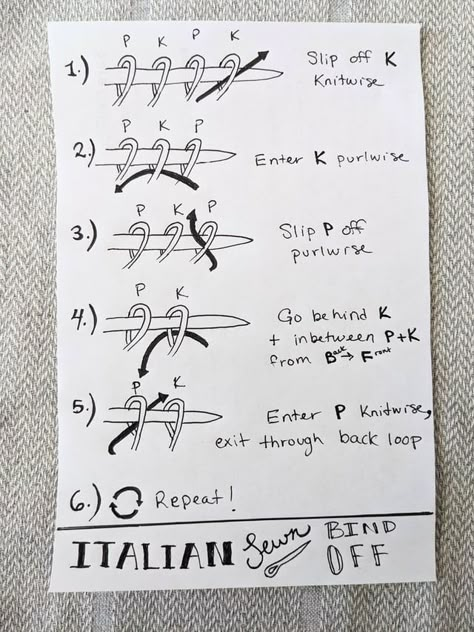 P K P K
1.) Slip off K
Knitwise
P K P
2.) Enter K purlwise
P K P
3.) Slip P off
purlwise
P K
4.) Go behind K
+ inbetween P+K
from Back → Front
P K
5.) Enter P Knitwise,
exit through back loop
6.) Repeat!
ITALIAN Sewn BIND
OFF